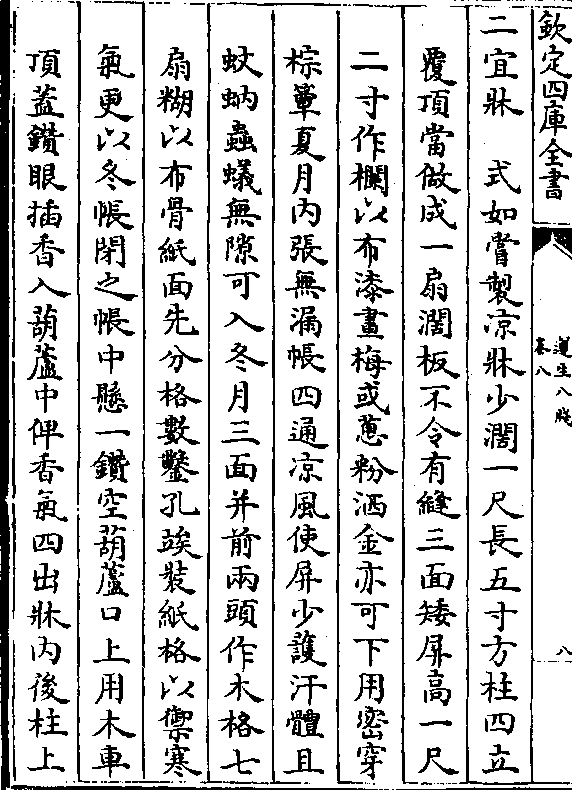 欽定四庫全書
遵生八牋
卷八
八
二宜牀　式如嘗製凉牀少濶一尺長五寸方柱四立
覆頂當做成一扇濶板不令有縫三面矮屏高一尺
二寸作欄以布漆畫梅或葱粉洒金亦可下用密穿
棕簟夏月内張無漏帳四通凉風使屏少護汗體且
蚊蚋蟲蟻無隙可入冬月三面并前兩頭作木格七
扇糊以布骨紙面先分格數鑿孔竢裝紙格以禦寒
氣更以冬帳閉之帳中懸一鑽空葫蘆口上用木車
頂蓋鑽眼插香入葫蘆中俾香氣四出牀内後柱上